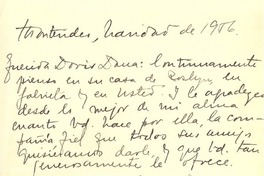 Montevideo, Navidad de 1956.
Querida Doris Dana: Continuamente
pienso en su casa de Roslyn, en
Gabriela y en Usted. Y le agradezco
desde lo mejor de mi alma
cuanto Vd. hace por ella, la com-
pañía fiel que todos sus amigos
quisiéramos darle, y que Vd. tan
generosamente le ofrece.